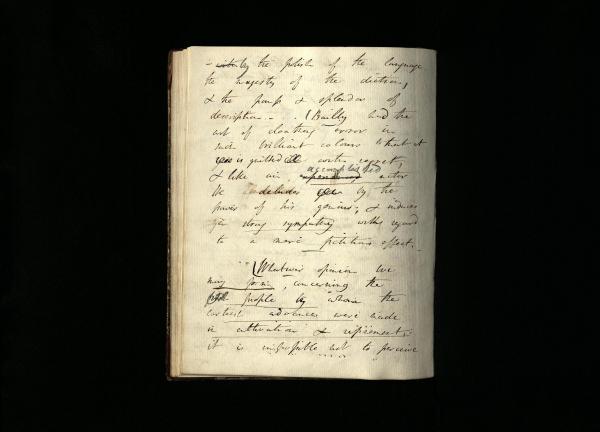 by the polish of the language,
the majesty of the diction,
& the pomp & splendor of
description. – (Bailly had the
art of cloathing error in
such brilliant colours that it
is quitted with regret,
accomplished
& like an actor
he deludes by the
power of his genius, & induces
strong sympathy with regard
to a mere fictitious effect.
Whatever opinion we
may form, concerning the
people by whom the
earliest advances were made
in cultivation & refinement;
it is impossible not to perceive